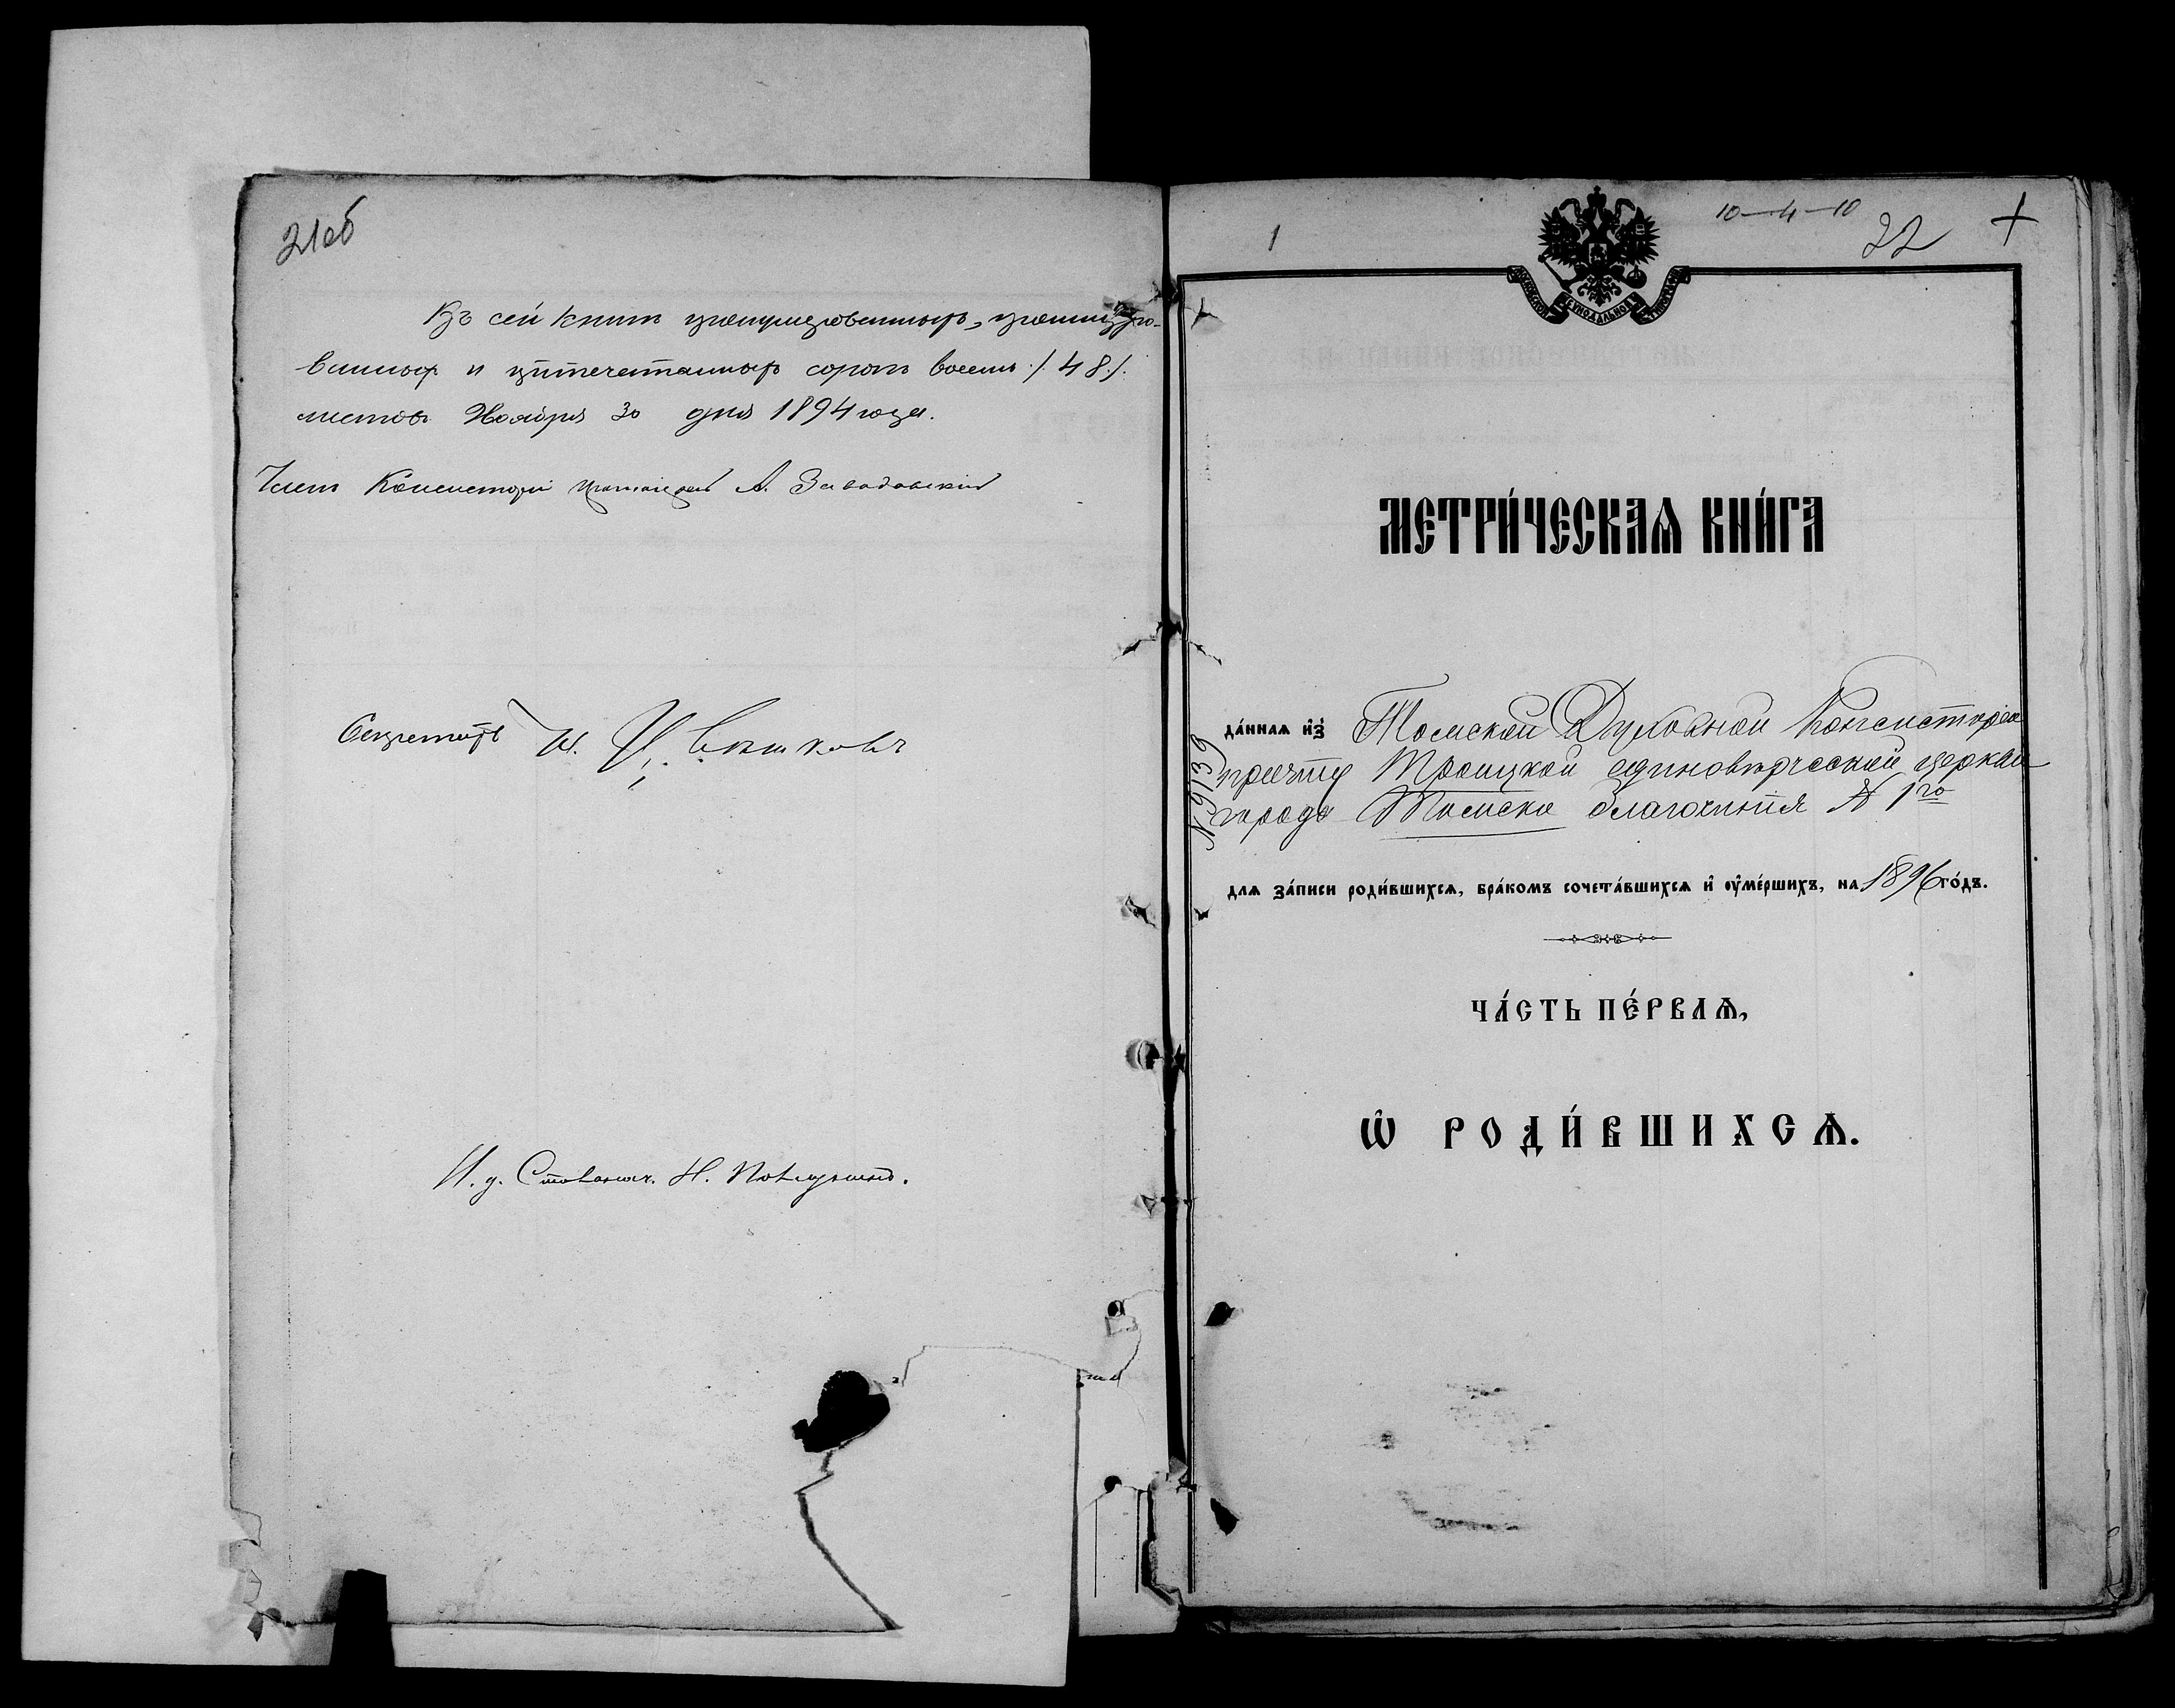 21об
Въ сей книгѣ пронумерованныхъ, прошнуро-
ванныхъ и припечатанныхъ сорокъ восемь /. 48 ./
листовъ Ноября 30 дня 1894 года.
Членъ Консисторіи А. Заводовскій
Секретарь И.
И. д. Столонач. Н.
1
10-4-10
22
МЕТРИ́ЧЕСКАѦ КНИ́ГА
№ 9139
да́ннаѧ и҆з̾ Томской Духовной Консисторіи
причту Троицкой единовѣрческой церкви
города Томска благочинія № 1го
длѧ за́писи роди́вшихсѧ, бра́комъ сочета́вшихсѧ и҆ ᲂу҆ме́ршихъ, на 1896 го́дъ.
ЧА́СТЬ ПЕ́РВАѦ,
Ѡ҆ РОДИ́ВШИХСѦ.